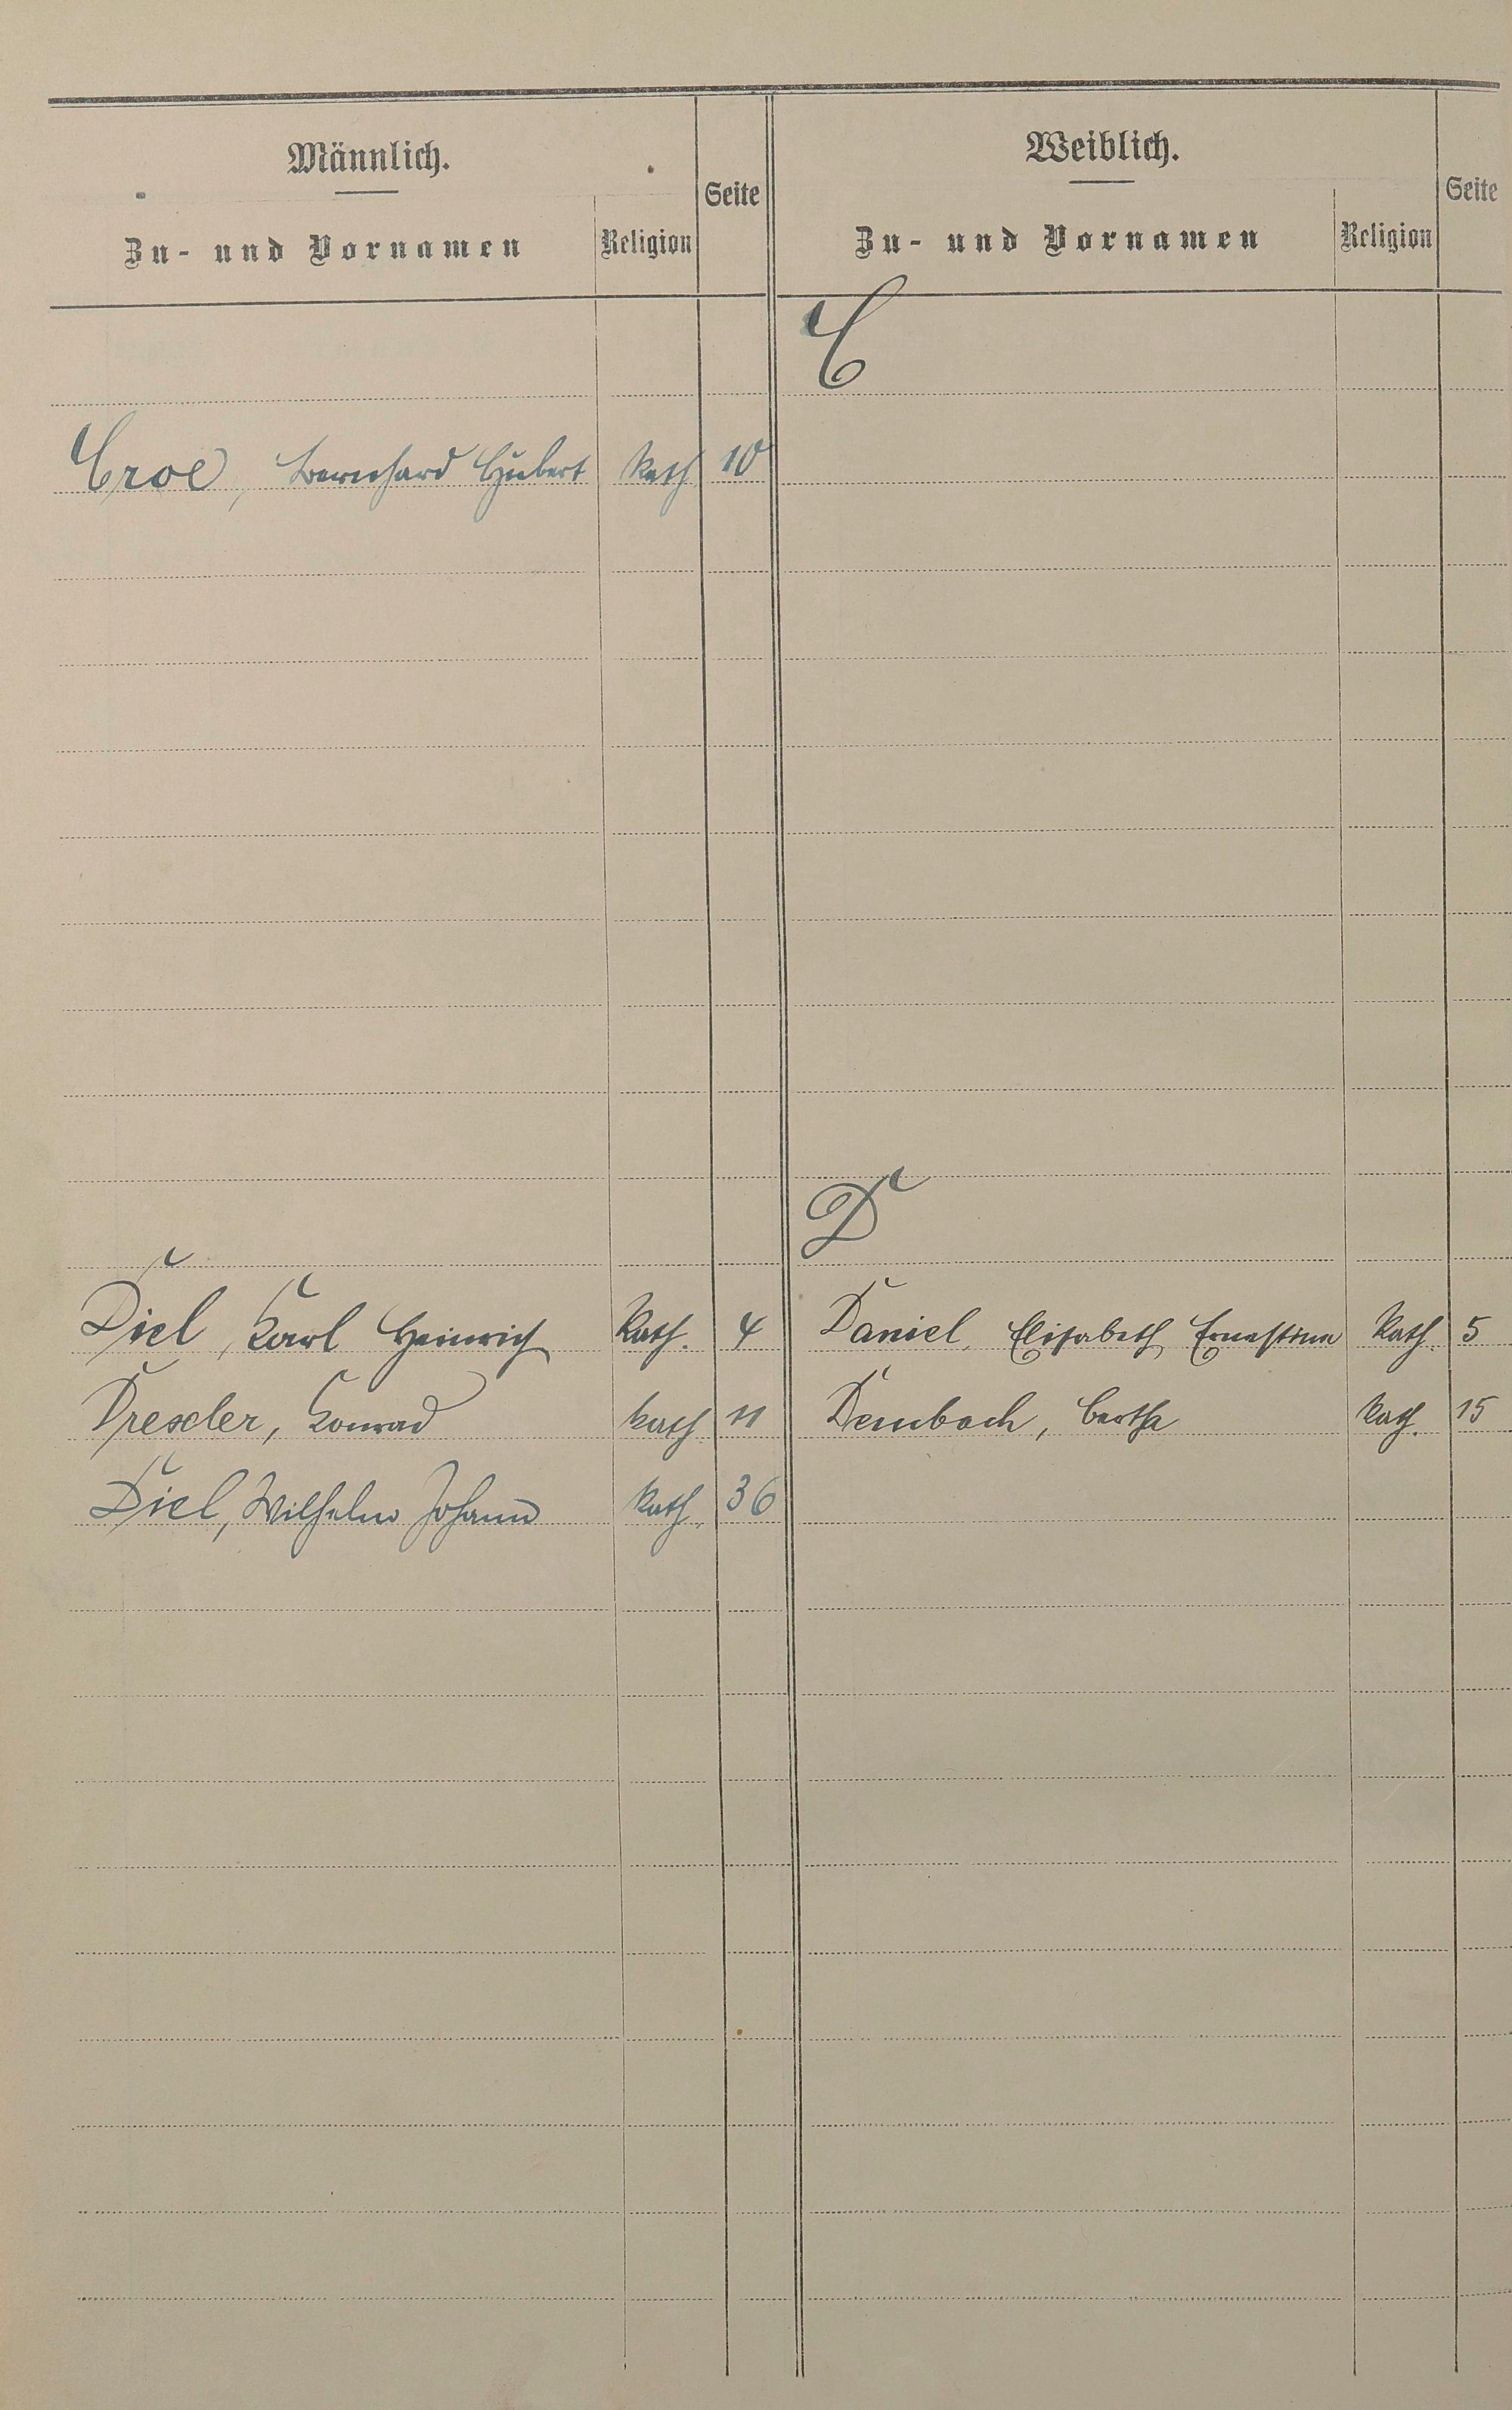 Männlich.
Zu- und Vornamen Religion Seite
Weiblich.
Zu- und Vornamen Religion Seite
C
Croé, Bernhard Hubert Kath 10
D
Diel, Karl Heinrich Kath. 4 Daniel, Elisabeth Ernestine Kath. 5
Drescler, Konrad Kath 11 Dembach, Bertha Kath. 15
Diel, Wilhelm Johann Kath. 36